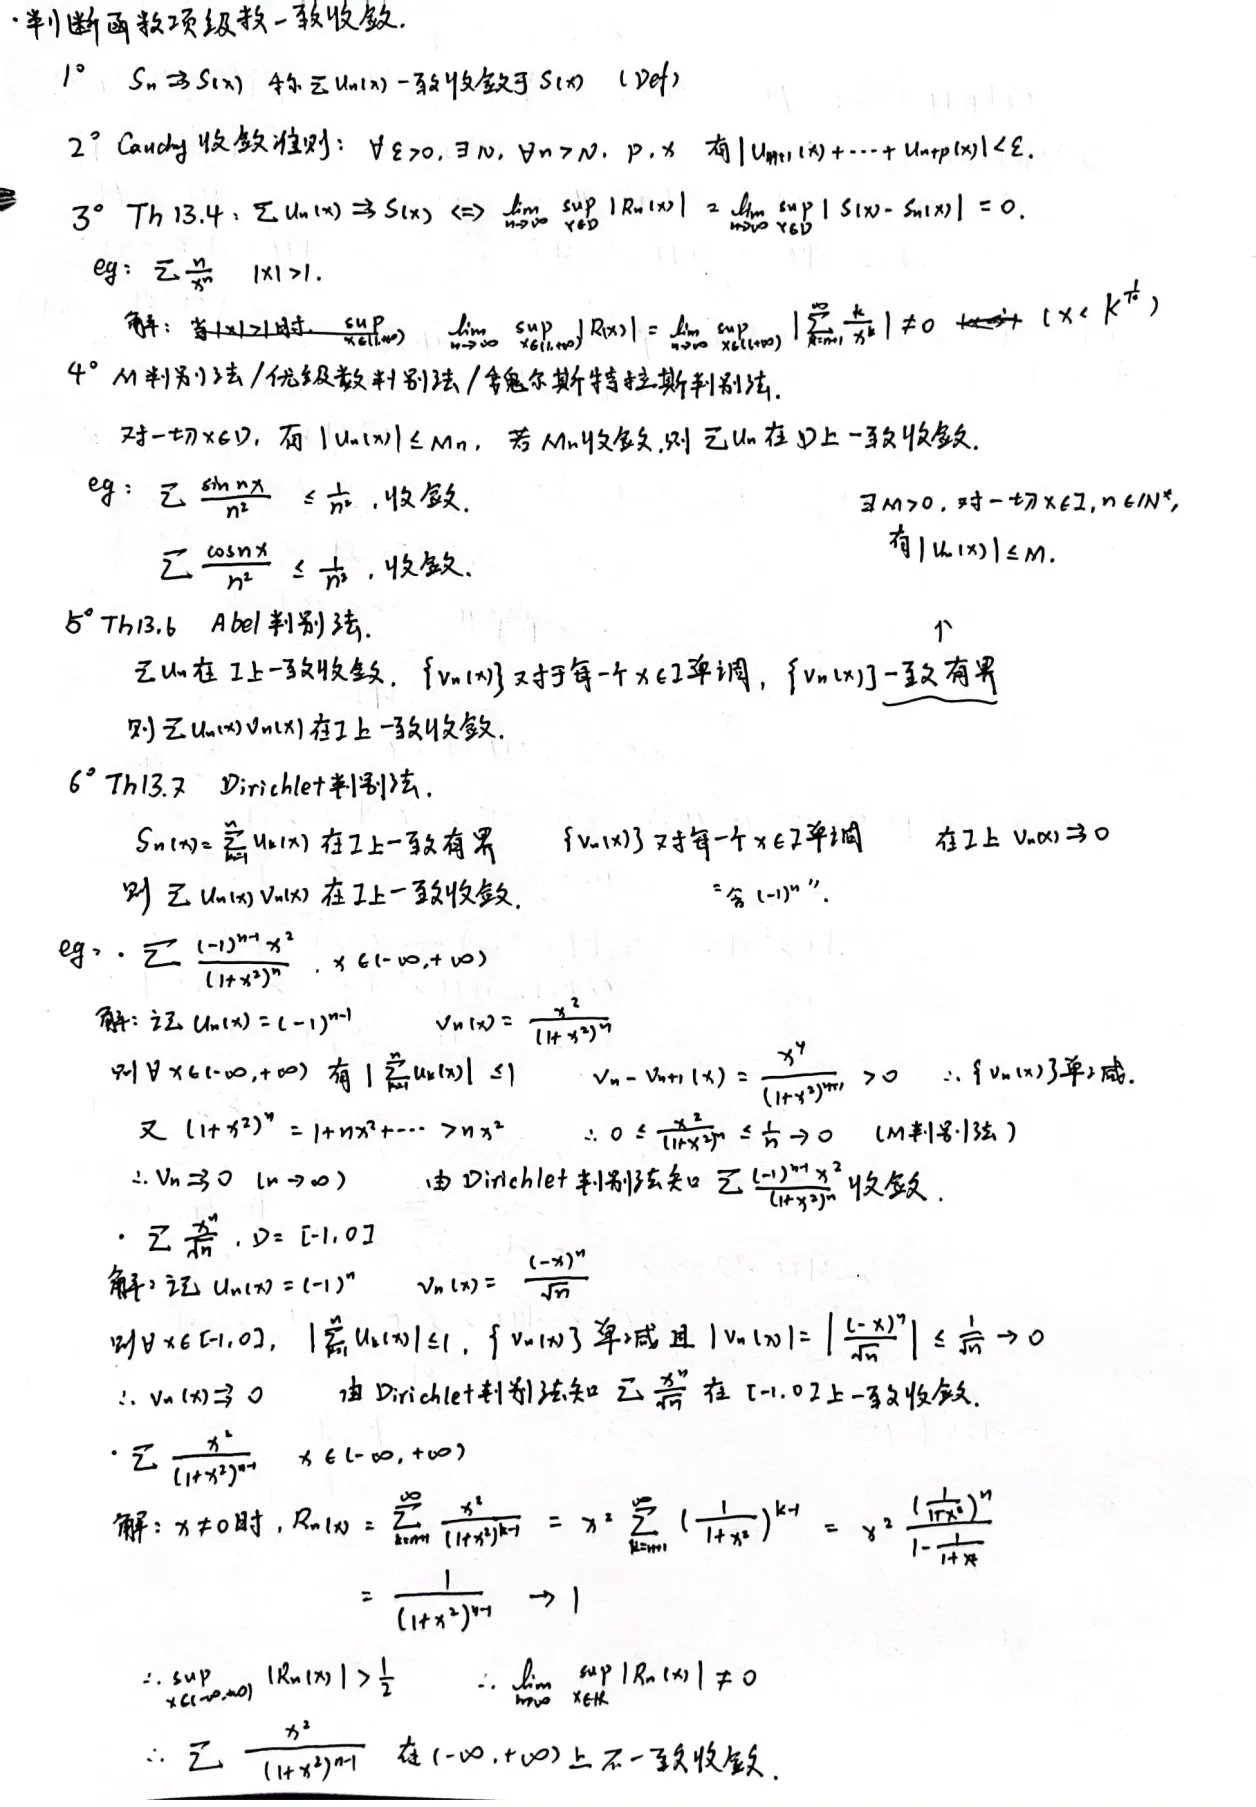 ·判断函数项级数一致收敛.
1° Sn⇉S(x) 称∑Un(x)一致收敛于S(x) (Def)
2° Cauchy收敛准则: ∀ε>0, ∃N, ∀n>N, p, x 有|Un+1(x)+···+Un+p(x)|<ε.
3° Th13.4: ∑Un(x)⇉S(x) <=> lim n→∞ sup x∈D |Rn(x)| = lim n→∞ sup x∈D |S(x)-Sn(x)| = 0.
eg: ∑ n/xⁿ |x|>1.
解: 当|x|>1时. sup x∈(1,+∞) lim n→∞ sup x∈(1,+∞) |R(x)| = lim n→∞ sup x∈(1,+∞) |∑k=n+1^∞ k/x^k| ≠0
4° M判别法/优级数判别法/魏尔斯特拉斯判别法.
对一切x∈D, 有|Un(x)|≤Mn, 若Mn收敛,则∑Un在D上一致收敛.
eg: ∑ sin nx/n² ≤ 1/n², 收敛.
∃M>0, 对一切x∈I, n∈N*,
有|Un(x)|≤M.
∑ cosnx/n² ≤ 1/n², 收敛.
5° Th13.6 Abel判别法. ↑
∑Un在I上一致收敛, {Vn(x)}对于每一个x∈I单调, {Vn(x)}一致有界
则∑Un(x)Vn(x)在I上一致收敛.
6° Th13.7 Dirichlet判别法.
Sn(x)=∑k=1^n Uk(x)在I上一致有界 {Vn(x)}对每一个x∈I单调 在I上Vn(x)⇉0
则∑Un(x)Vn(x)在I上一致收敛. "含(-1)ⁿ".
eg: ·∑ (-1)^(n-1)x²/(1+x²)ⁿ, x∈(-∞,+∞)
解: 记Un(x)=(-1)^(n-1) Vn(x)= x²/(1+x²)ⁿ
则∀x∈(-∞,+∞)有|∑k=1^n Uk(x)|≤1 Vn-Vn+1(x)= x⁴/(1+x²)^(n+1) >0 ∴{Vn(x)}单减.
又(1+x²)ⁿ=1+nx²+···>nx² ∴0≤ x²/(1+x²)ⁿ ≤ 1/n →0 (M判别法)
∴Vn⇉0 (n→∞) 由Dirichlet判别法知∑ (-1)^(n-1)x²/(1+x²)ⁿ 收敛.
·∑ xⁿ/√n, D=[-1,0]
解: 记Un(x)=(-1)ⁿ Vn(x)= (-x)ⁿ/√n
则∀x∈[-1,0], |∑k=1^n Uk(x)|≤1, {Vn(x)}单减且|Vn(x)|=|(-x)ⁿ/√n|≤ 1/√n →0
∴Vn(x)⇉0 由Dirichlet判别法知∑ xⁿ/√n 在[-1,0]上一致收敛.
·∑ x²/(1+x²)^(n-1) x∈(-∞,+∞)
解: x≠0时, Rn(x) = ∑k=n+1^∞ x²/(1+x²)^(k-1) = x² ∑k=n+1^∞ (1/(1+x²))^(k-1) = x² (1/(1+x²))ⁿ/(1-1/(1+x²))
= 1/(1+x²)^(n-1) →1
∴ sup x∈(-∞,+∞) |Rn(x)|> 1/2 ∴ lim n→∞ sup x∈R |Rn(x)|≠0
∴ ∑ x²/(1+x²)^(n-1) 在(-∞,+∞)上不一致收敛.